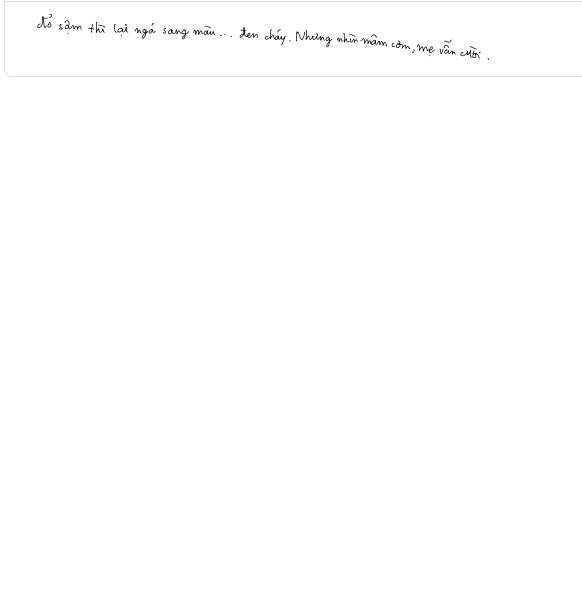 đỏ sậm thì lại ngả sang màu... đen cháy. Nhưng nhìn mâm cơm, mẹ vẫn cười.